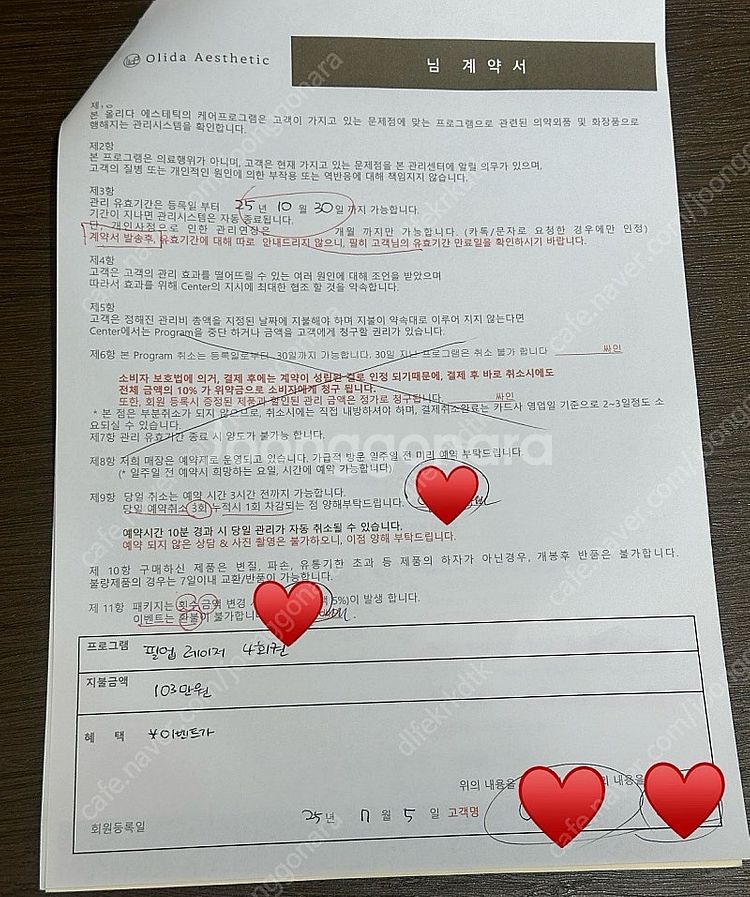 Olida Aesthetic
님 계약서
본 올리다 에스테틱의 케어프로그램은 고객이 가지고 있는 문제점에 맞는 프로그램으로 관련된 의약외품 및 화장품으로
행해지는 관리시스템을 확인합니다.
제2항
본 프로그램은 의료행위가 아니며, 고객은 현재 가지고 있는 문제점을 본 관리센터에 알릴 의무가 있으며,
고객의 질병 또는 개인적인 원인에 의한 부작용 또는 역반응에 대해 책임지지 않습니다.
제3항
관리 유효기간은 등록일 부터 25년 10월 30일 까지 가능합니다.
기간이 지나면 관리시스템은 자동 종료됩니다.
단, 개인사정으로 인한 관리연장은 개월 까지만 가능합니다. (카톡/문자로 요청한 경우에만 인정)
계약서 발송후, 유효기간에 대해 따로 안내드리지 않으니, 필히 고객님의 유효기간 만료일을 확인하시기 바랍니다.
제4항
고객은 고객의 관리 효과를 떨어뜨릴 수 있는 여러 원인에 대해 조언을 받았으며
따라서 효과를 위해 Center의 지시에 최대한 협조 할 것을 약속합니다.
제5항
고객은 정해진 관리비 총액을 지정된 날짜에 지불해야 하며 지불이 약속대로 이루어 지지 않는다면
Center에서는 Program을 중단 하거나 금액을 고객에게 청구할 권리가 있습니다.
제6항 본 Program 취소는 등록일로부터 30일까지 가능합니다. 30일 지난 프로그램은 취소 불가 합니다 싸인
소비자 보호법에 의거, 결제 후에는 계약이 성립된 걸로 인정 되기때문에, 결제 후 바로 취소시에도
전체 금액의 10% 가 위약금으로 소비자에게 청구 됩니다.
또한, 회원 등록시 증정된 제품과 할인된 관리 금액은 정가로 청구됩니다. 싸인
* 본 점은 부분취소가 되지 않으므로, 취소시에는 직접 내방하셔야 하며, 결제취소완료는 카드사 영업일 기준으로 2~3일정도 소
요되실 수 있습니다.
제7항 관리 유효기간 종료 시 양도가 불가능 합니다.
제8항 저희 매장은 예약제로 운영되고 있습니다. 가급적 방문 일주일 전 미리 예약 부탁드립니다.
(* 일주일 전 예약시 희망하는 요일, 시간에 예약 가능합니다.)
joonggonara
제9항 당일 취소는 예약 시간 3시간 전까지 가능합니다.
당일 예약취소 3회 누적시 1회 차감되는 점 양해부탁드립니다.
예약시간 10분 경과 시 당일 관리가 자동 취소될 수 있습니다.
예약 되지 않은 상담 & 사진 촬영은 불가하오니, 이점 양해 부탁드립니다.
제 10항 구매하신 제품은 변질, 파손, 유통기한 초과 등 제품의 하자가 아닌경우, 개봉후 반품은 불가합니다.
불량제품의 경우는 7일이내 교환/반품이 가능합니다.
제 11항 패키지는 횟수 금액 변경 5%)이 발생 합니다.
이벤트는 환불이 불가합니다
프로그램 필업 레이저 4회권
지불금액 103만원
혜 택 ※이벤트가
위의 내용을 내용을
회원등록일 25년 7월 5일 고객명
cafe.naver.com/joonggonara
dlfekrkdtk